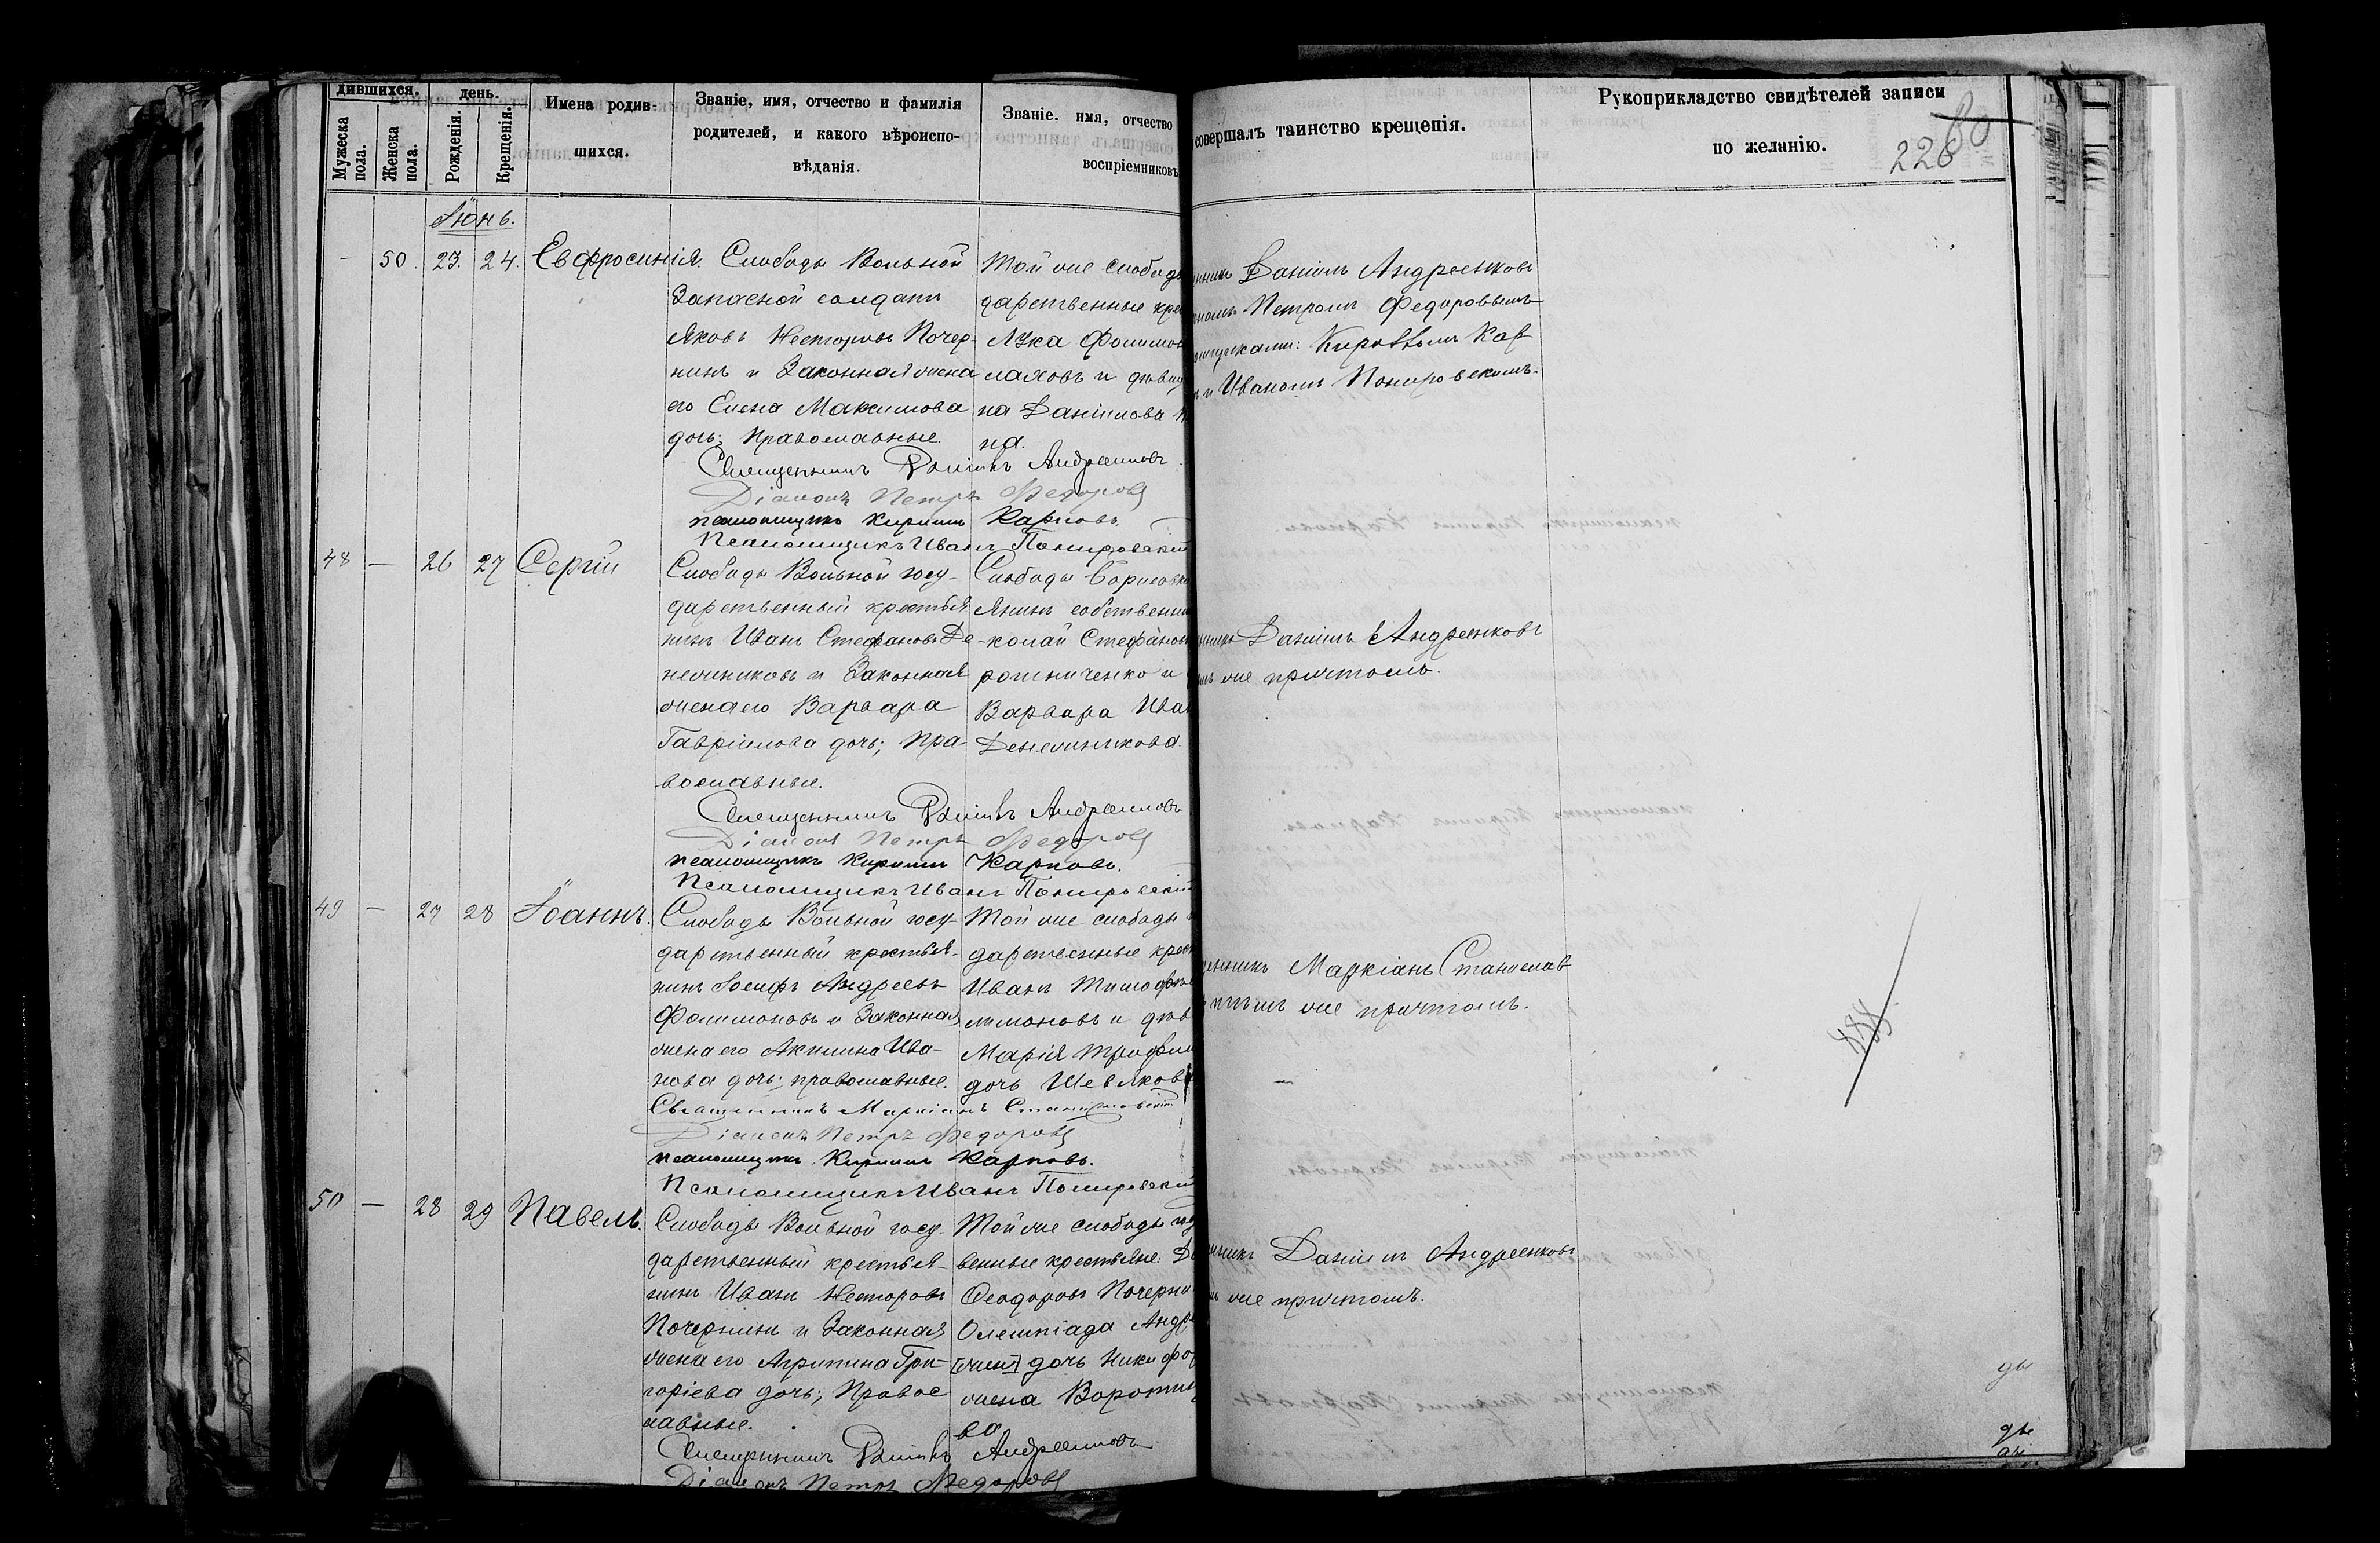 дившихся.
день.
Мужеска пола.
Женска пола.
Рожденія.
Крещенія.
Имена родив-
шихся.
Званіе, имя, отчество и фамилія
родителей, и какого вѣроиспо-
вѣданія.
Званіе. имя, отчество
воспріемниковъ
совершалъ таинство крещенія.
Рукоприкладство свидѣтелей записи
по желанію.
80
226
Іюнь.
- 50. 23. 24. Евфросинія.
Слободы Вольной
Запасной солдатъ
Яковъ Несторовъ Почер-
нинъ и Законная жена
его Елена Максимова
дочь; Православные.
Той же слободы
дарственные кре
Лука Филимон
лаховъ и дѣвиц
на Даніилова
на.
Даніилъ Андреенковъ
Петромъ Федоровымъ
Кирилломъ Кар
и Иваномъ Понировскимъ.
Священникъ Даніилъ Андреенковъ
Діаконъ Петръ Федоровъ
псаломщикъ Кириллъ Карповъ.
Псаломщикъ Иванъ Понировскій
48 — 26 27 Сергій
Слободы Вольной госу-
дарственный крестья
нинъ Иванъ Стефановъ Де-
нежниковъ и Законная
жена его Варвара
Гавріилова дочь; Пра-
вославные.
Слободы Борисовки
янинъ собственни
колай Стефанов
рошниченко и
Варвара Иван
Денежникова.
Даніилъ Андреенковъ
же причтомъ.
Священникъ Даніилъ Андреенковъ
Діаконъ Петръ Федоровъ
псаломщикъ Кириллъ Карповъ.
Псаломщикъ Иванъ Понировскій
49 — 27 28 Іоаннъ.
Слободы Вольной госу-
дарственный крестья-
нинъ Іосифъ Андреевъ
Филимоновъ и Законная
жена его Акилина Ива-
нова дочь; православные.
Той же слободы
дарственные крест
Иванъ Тимофѣе
лимоновъ и дѣв
Марія Трофим
дочь Шевякова
енникъ Маркіанъ Станислав
тѣмъ же причтомъ.
488
Священникъ Маркіанъ Станиславскій
Діаконъ Петръ Федоровъ
псаломщикъ Кириллъ Карповъ.
Псаломщикъ Иванъ Понировскій
50 — 28 29 Павелъ.
Слободы Вольной госу-
дарственный крестья-
нинъ Иванъ Несторовъ
Почернинъ и Законная
жена его Агрипина Гри-
горіева дочь; Правос
лавные.
Той же слободы го
венные крестьяне:
Феодоровъ Почерни
Олемпіада Андре
[жен] дочь Никифор
жена Воротын
ва
Даніилъ Андреенковъ
же причтомъ.
Священникъ Даніилъ Андреенковъ
Діаконъ Петръ Федоровъ